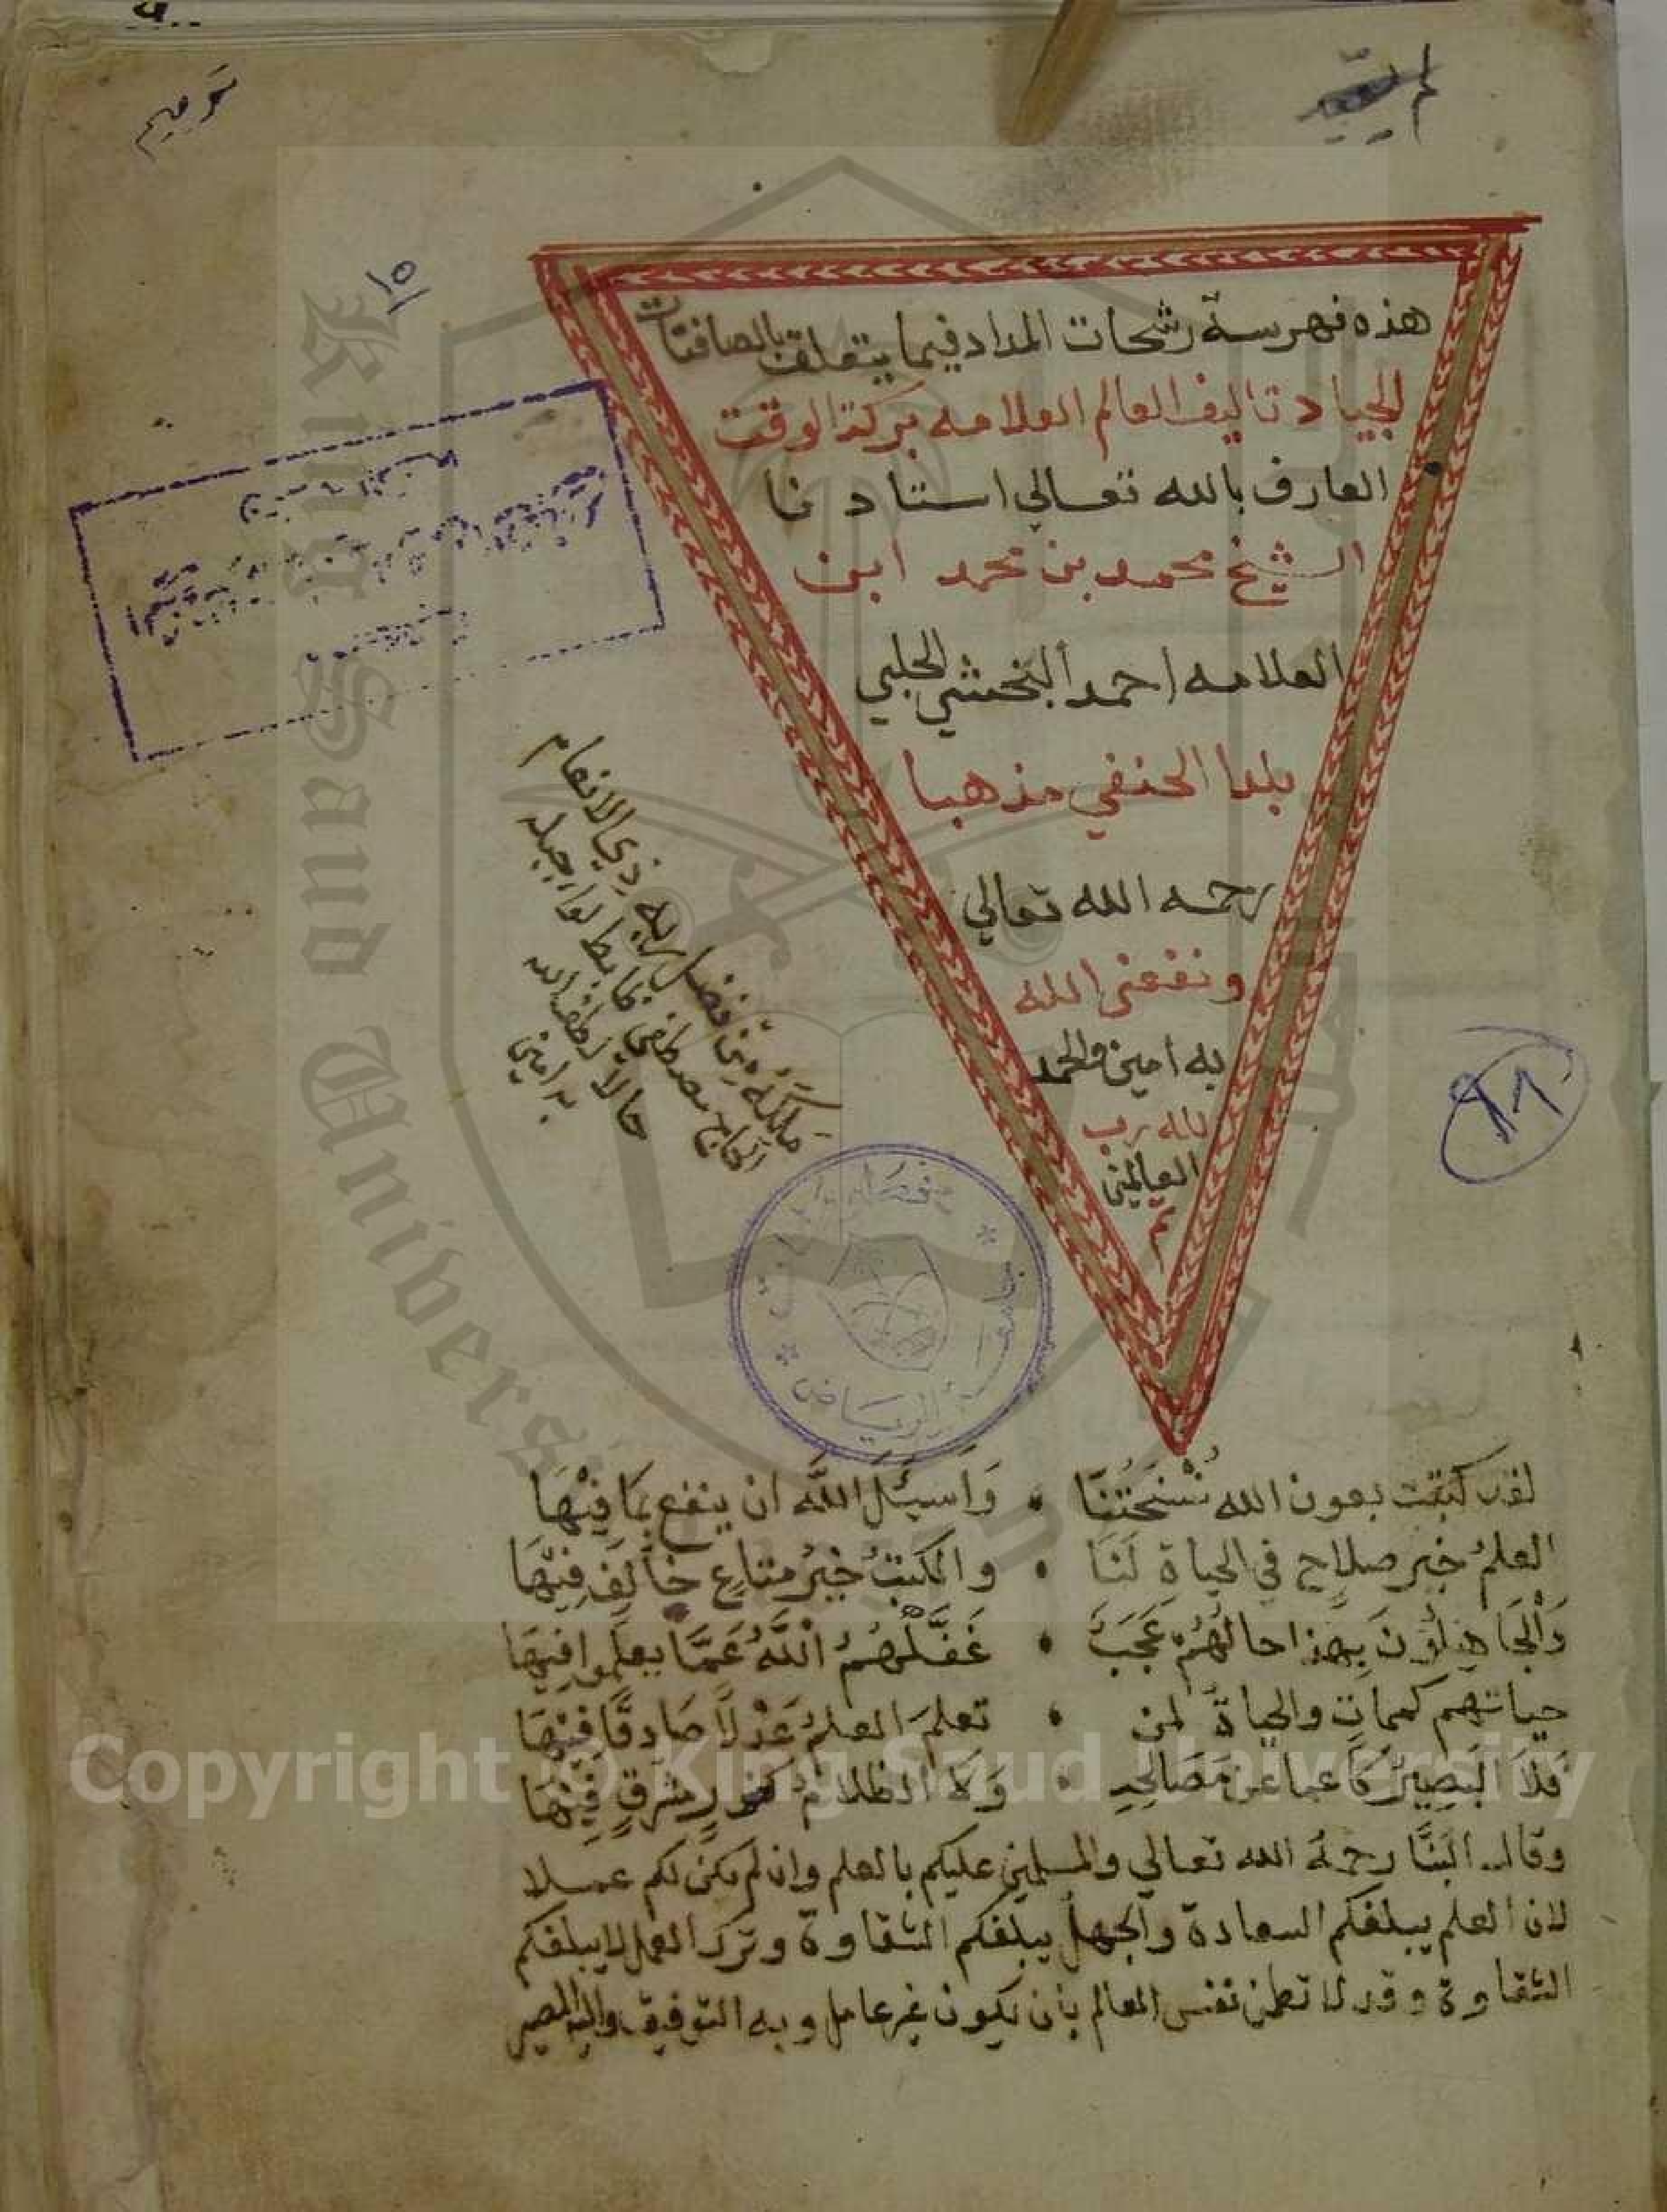 ترميم
١٥١
هذه فهرسة رشحات المداد فيما يتعلق بالصافنات
الجياد تاليف العالم العلامه بركة الوقت
العارف بالله تعالي استادنا
الشيخ محمد بن محمد ابن
العلامه احمد البخشي الحلبي
بلدا الحنفي مذهبا
رحمه الله تعالي
ونفعني الله
به امين والحمد
لله رب
العالمين
م
ملكه من فضل ربه ذي الانعام
الحاج مصطفى
حالا لطف الله
به امين
٩٨٠
الرياض
لقد كتبت بعون الله نُسْخَتُنَا • وَاَسئَلُ اللَّه ان ينفع بمَا فِيْهَا
العلمُ خير صلاحٍ في الحياة لَنَا • والكتبُ خيرُ متاعٍ خالِفٍ فِيْهَا
وَالجَاهِلُونَ بهذا حالهُمْ عَجَبٌ • غَفَّلَهُمُ اللَّهُ عَمَّا يعلموا فيهَا
حياتهم كمماتٍ والحياةُ لمن • تعلمَ العلمُ عَدْلاً صَادقًا فِيْهَا
فَلاَ البَصِيْرُ كاعما عن مَصَالحِهِ • وَلاَ الظلامُ كنورٍ مشرقٍ فِيْهَا
وقال البَنَّا رحمهُ الله تعالي والمسلمين عليكم بالعلم وان لم يكن لكم عملا
لان العلم يبلغكم السعادة والجهل يبلغكم الشقاوة وترك العمل لا يبلغكم
الشقاوة وقد لا تطمن نفس العالم بأن يكون غير عامل وبه التوفيق واليه المصير
King Saud University
Copyright © King Saud University